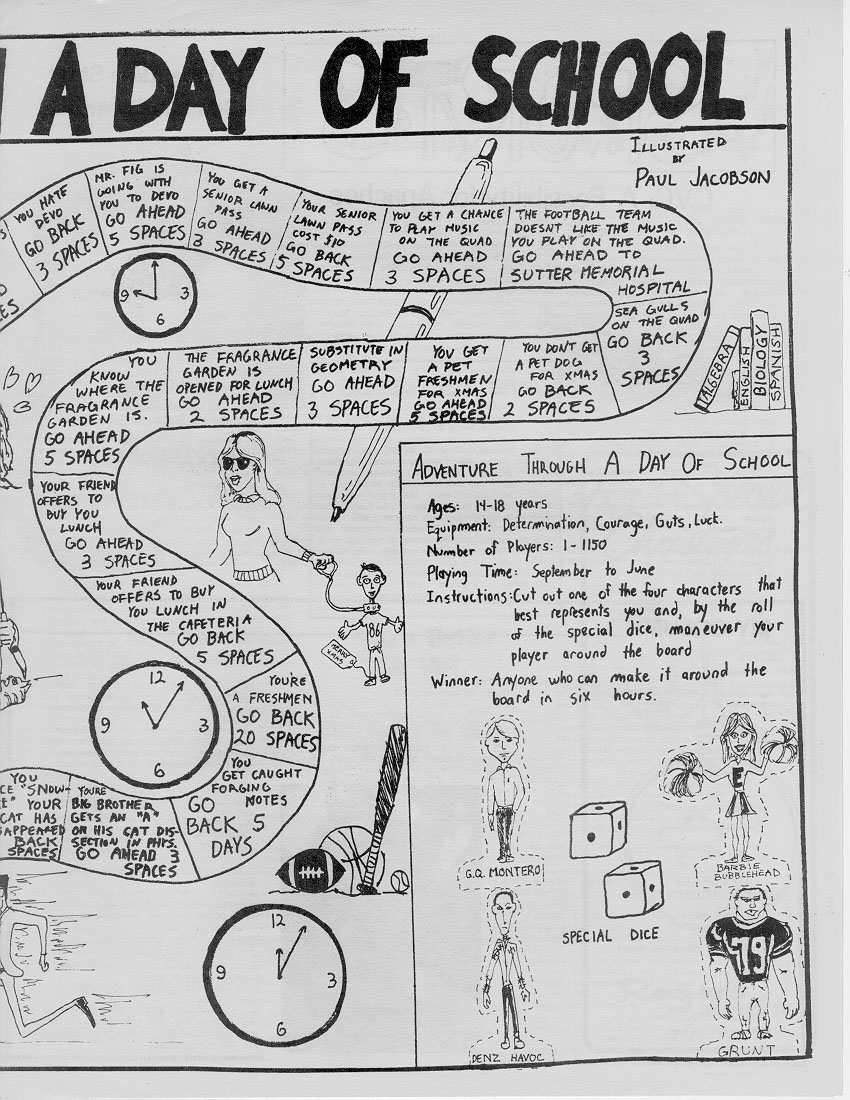 A DAY OF SCHOOL
ILLUSTRATED
BY
PAUL JACOBSON
YOU HATE
DEVO
GO BACK
3 SPACES
MR. FIG IS
GOING WITH
YOU TO DEVO
GO AHEAD
5 SPACES
YOU GET A
SENIOR LAWN
PASS
GO AHEAD
3 SPACES
YOUR SENIOR
LAWN PASS
COST $10
GO BACK
5 SPACES
YOU GET A CHANCE
TO PLAY MUSIC
ON THE QUAD
GO AHEAD
3 SPACES
THE FOOTBALL TEAM
DOESNT LIKE THE MUSIC
YOU PLAY ON THE QUAD.
GO AHEAD TO
SUTTER MEMORIAL
HOSPITAL
SEA GULLS
ON THE QUAD
GO BACK
3
SPACES
YOU DON'T GET
A PET DOG
FOR XMAS
GO BACK
2 SPACES
YOU GET
A PET
FRESHMEN
FOR XMAS
GO AHEAD
5 SPACES
SUBSTITUTE IN
GEOMETRY
GO AHEAD
3 SPACES
THE FRAGRANCE
GARDEN IS
OPENED FOR LUNCH
GO AHEAD
2 SPACES
YOU
KNOW
WHERE THE
FRAGRANCE
GARDEN IS.
GO AHEAD
5 SPACES
YOUR FRIEND
OFFERS TO
BUY YOU
LUNCH
GO AHEAD
3 SPACES
YOUR FRIEND
OFFERS TO BUY
YOU LUNCH IN
THE CAFETERIA
GO BACK
5 SPACES
YOU'RE
A FRESHMEN
GO BACK
20 SPACES
YOU
GET CAUGHT
FORGING
NOTES
GO
BACK 5
DAYS
YOURE
BIG BROTHER
GETS AN "A"
ON HIS CAT DIS-
SECTION IN PHYS.
GO AHEAD 3
SPACES
YOU
"SNOW-
YOUR
CAT HAS
BACK
SPACES
9 3
6
12
9 3
6
12
9 3
6
86
MERRY
XMAS
ALGEBRA I
ENGLISH
BIOLOGY
SPANISH
ADVENTURE THROUGH A DAY OF SCHOOL
Ages: 14-18 years
Equipment: Determination, Courage, Guts, Luck.
Number of Players: 1-1150
Playing Time: September to June
Instructions: Cut out one of the four characters that
best represents you and, by the roll
of the special dice, maneuver your
player around the board
Winner: Anyone who can make it around the
board in six hours.
G.Q. MONTERO
E
BARBIE
BUBBLEHEAD
SPECIAL DICE
DENZ HAVOC
79
GRUNT